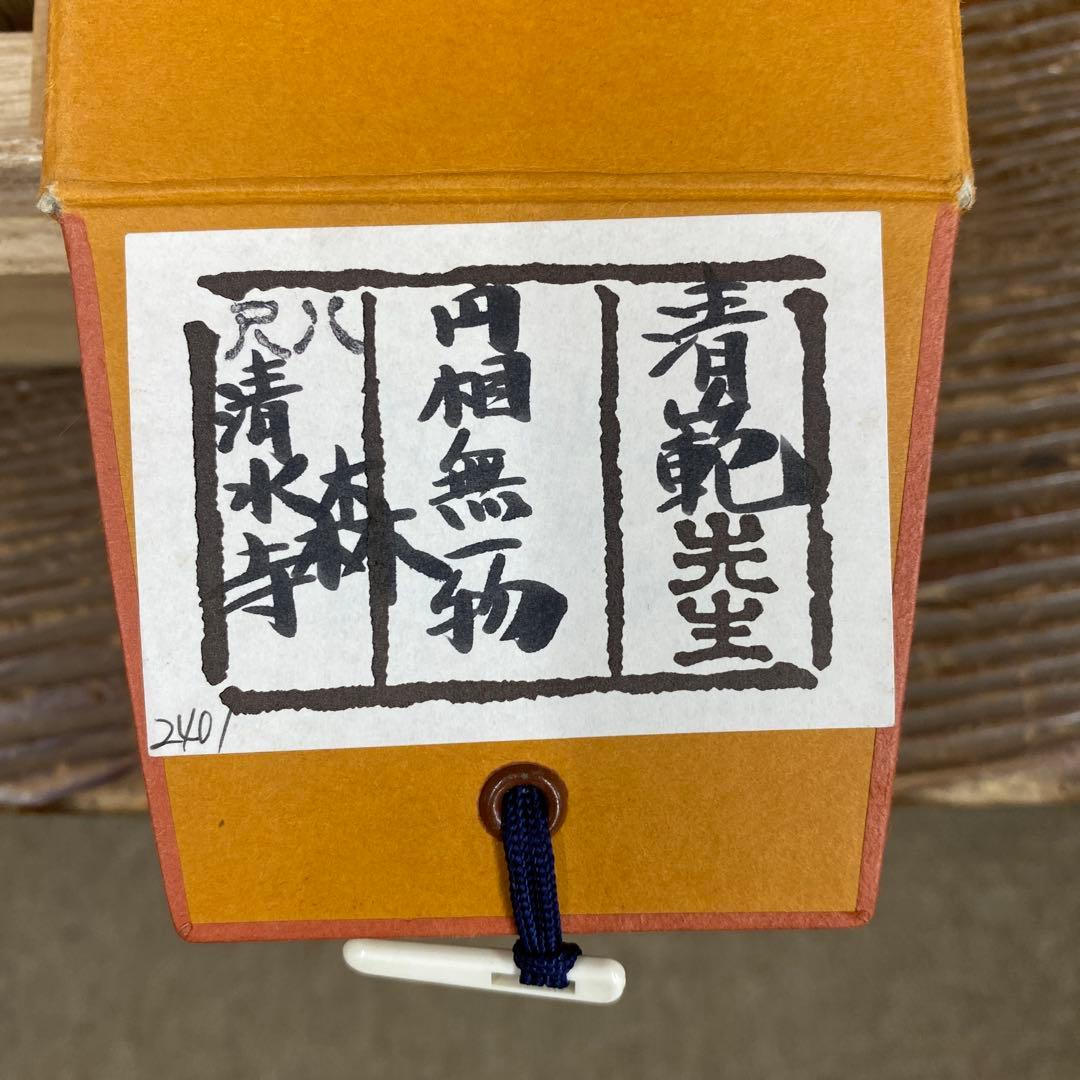 清範先生
円相無一物
尺八
清水寺
森
2401